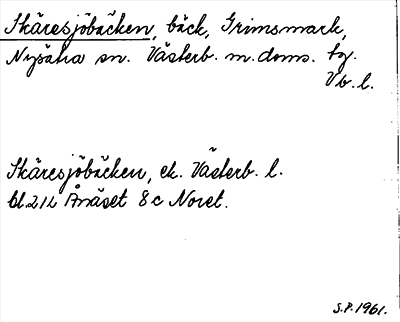 Skäresjöbäcken, bäck, Grimsmark,
Nysätra sn. Västerb. m.doms. tg.
Vb. l.
Skäresjöbäcken, ek. Västerb. l.
bl.21L Ånäset 8c Noret.
S.P. 1961.